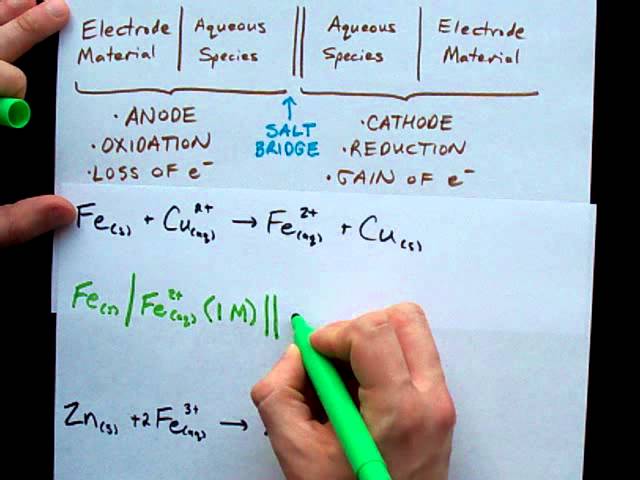 Electrode Material | Aqueous Species || Aqueous Species | Electrode Material
· ANODE
· OXIDATION
· LOSS OF e⁻
SALT
BRIDGE
· CATHODE
· REDUCTION
· GAIN OF e⁻
Fe(s) + Cu²⁺(aq) → Fe²⁺(aq) + Cu(s)
Fe(s) | Fe²⁺(aq) (1 M) ||
Zn(s) + 2Fe³⁺(aq) →